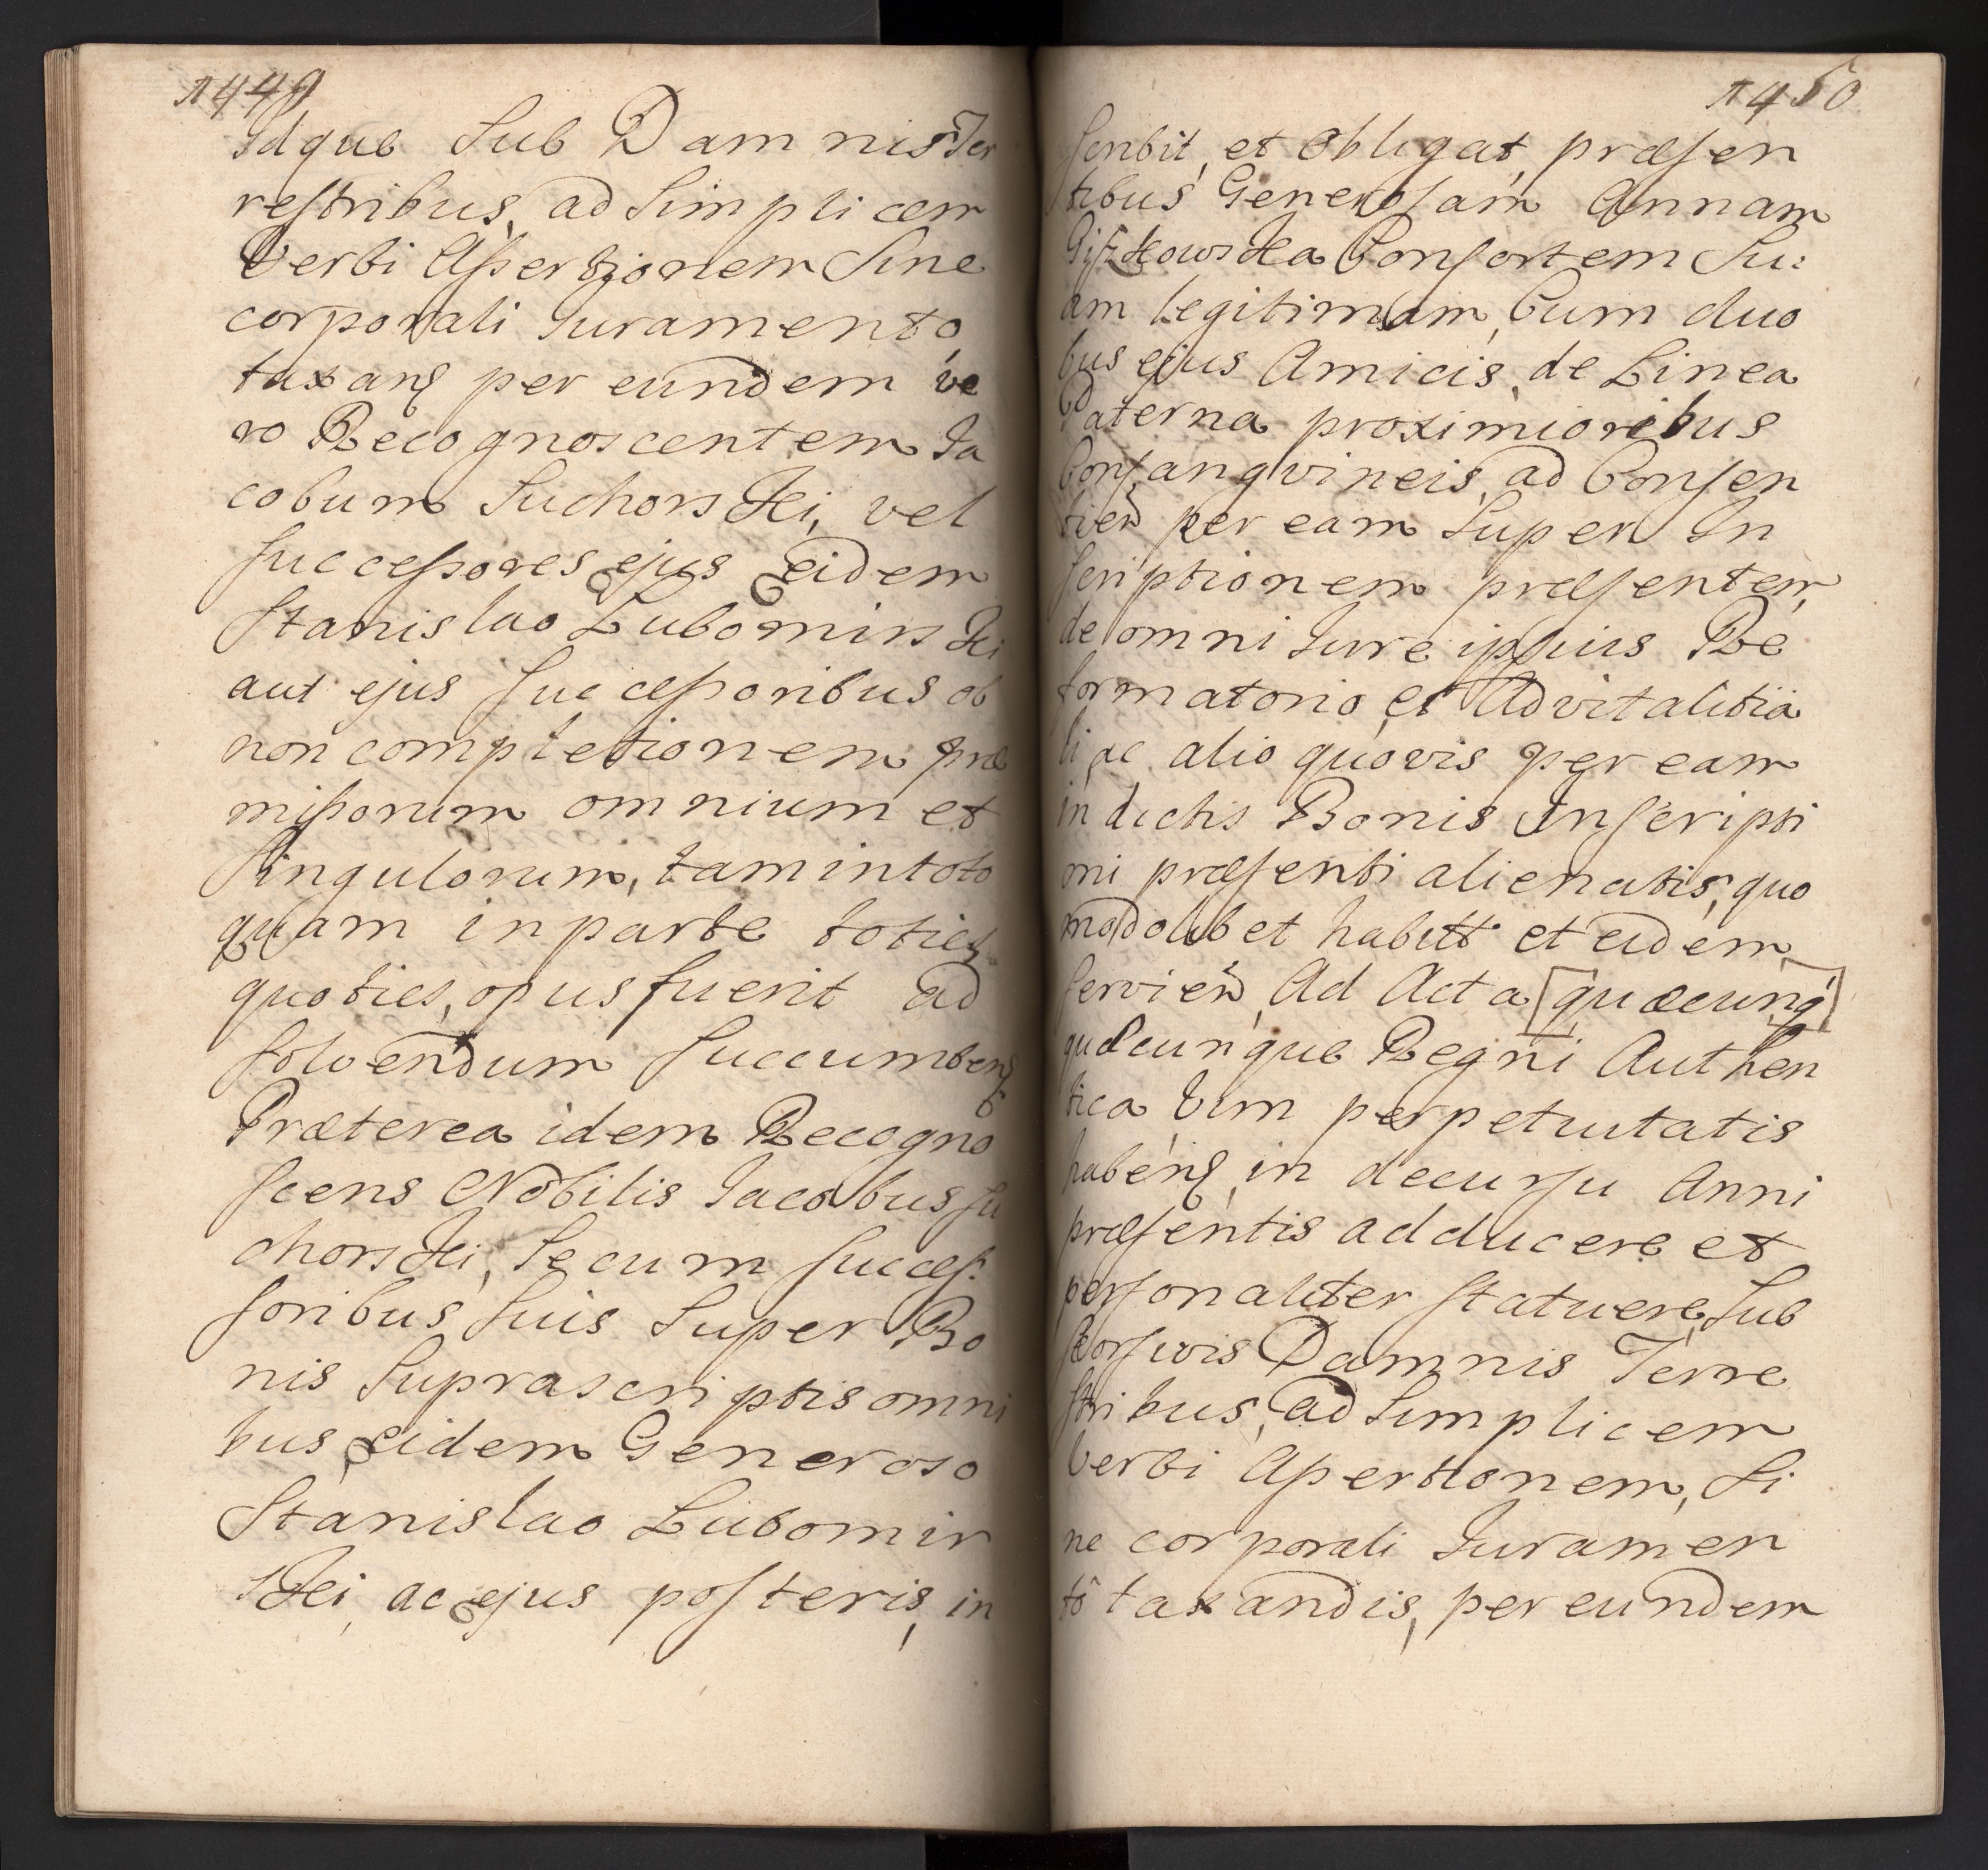 1449
Idque Sub Damnis Ter
restribus, ad Simplicem
Verbi Assertionem Sine
corporali Iuramento,
taxans per eundem ve
ro Recognoscentem Ia
cobum Suchorski, vel
Successores ejus eidem
Stanislao Lubomirski
aut ejus Successoribus ob
non completionem præ
missorum omnium et
Singulorum, tam in toto
quam in parte toties
quoties, opus fuerit ad
solvendum succumbens
Præterea idem Recogno
scens Nobilis Iacobus Su
chorski, Secum Succes:
soribus Suis Super Bo
nis Suprascriptis omni
bus eidem Generoso
Stanislao Lubomir
ski, ac ejus posteris, in
1450
scribit, et Obligat, præsen
tibus Generosam Annam
Consortem Su:
am legitimam, Cum duo
bus ejus Amicis, de Linea
Paterna proximioribus
Consangvineis, ad Consen
tien per eam Super In
scriptionem præsentem,
de omni Iure ipsius Re
formatorio, et Advitalitia
li ac alio quovis per eam
in dictis Bonis Inscripti
oni præsenti alienatis, quo
modolibet habitt et eidem
servien, Ad Acta [quæcunq]
quæcunque Regni Authen
tica Vim perpetuitatis
habens, in decursu Anni
præsentis adducere et
personaliter statuere, Sub
seorsivis Damnis Terre
stribus, ad Simplicem
Verbi Assertionem, Si
ne corporali Iuramen
to taxandis, per eundem